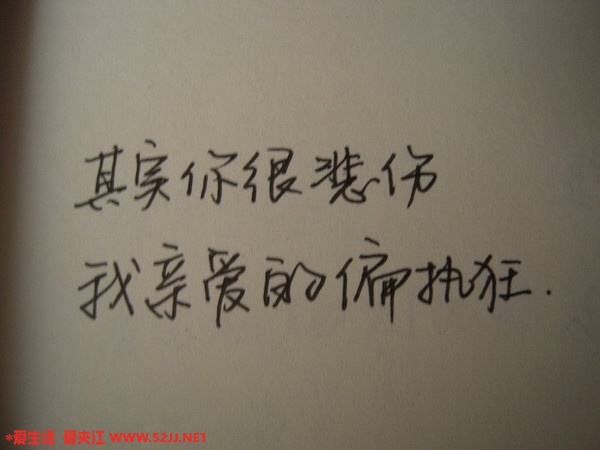 其实你很悲伤
我亲爱的偏执狂.
*爱生活 爱夹江 WWW.52JJ.NET